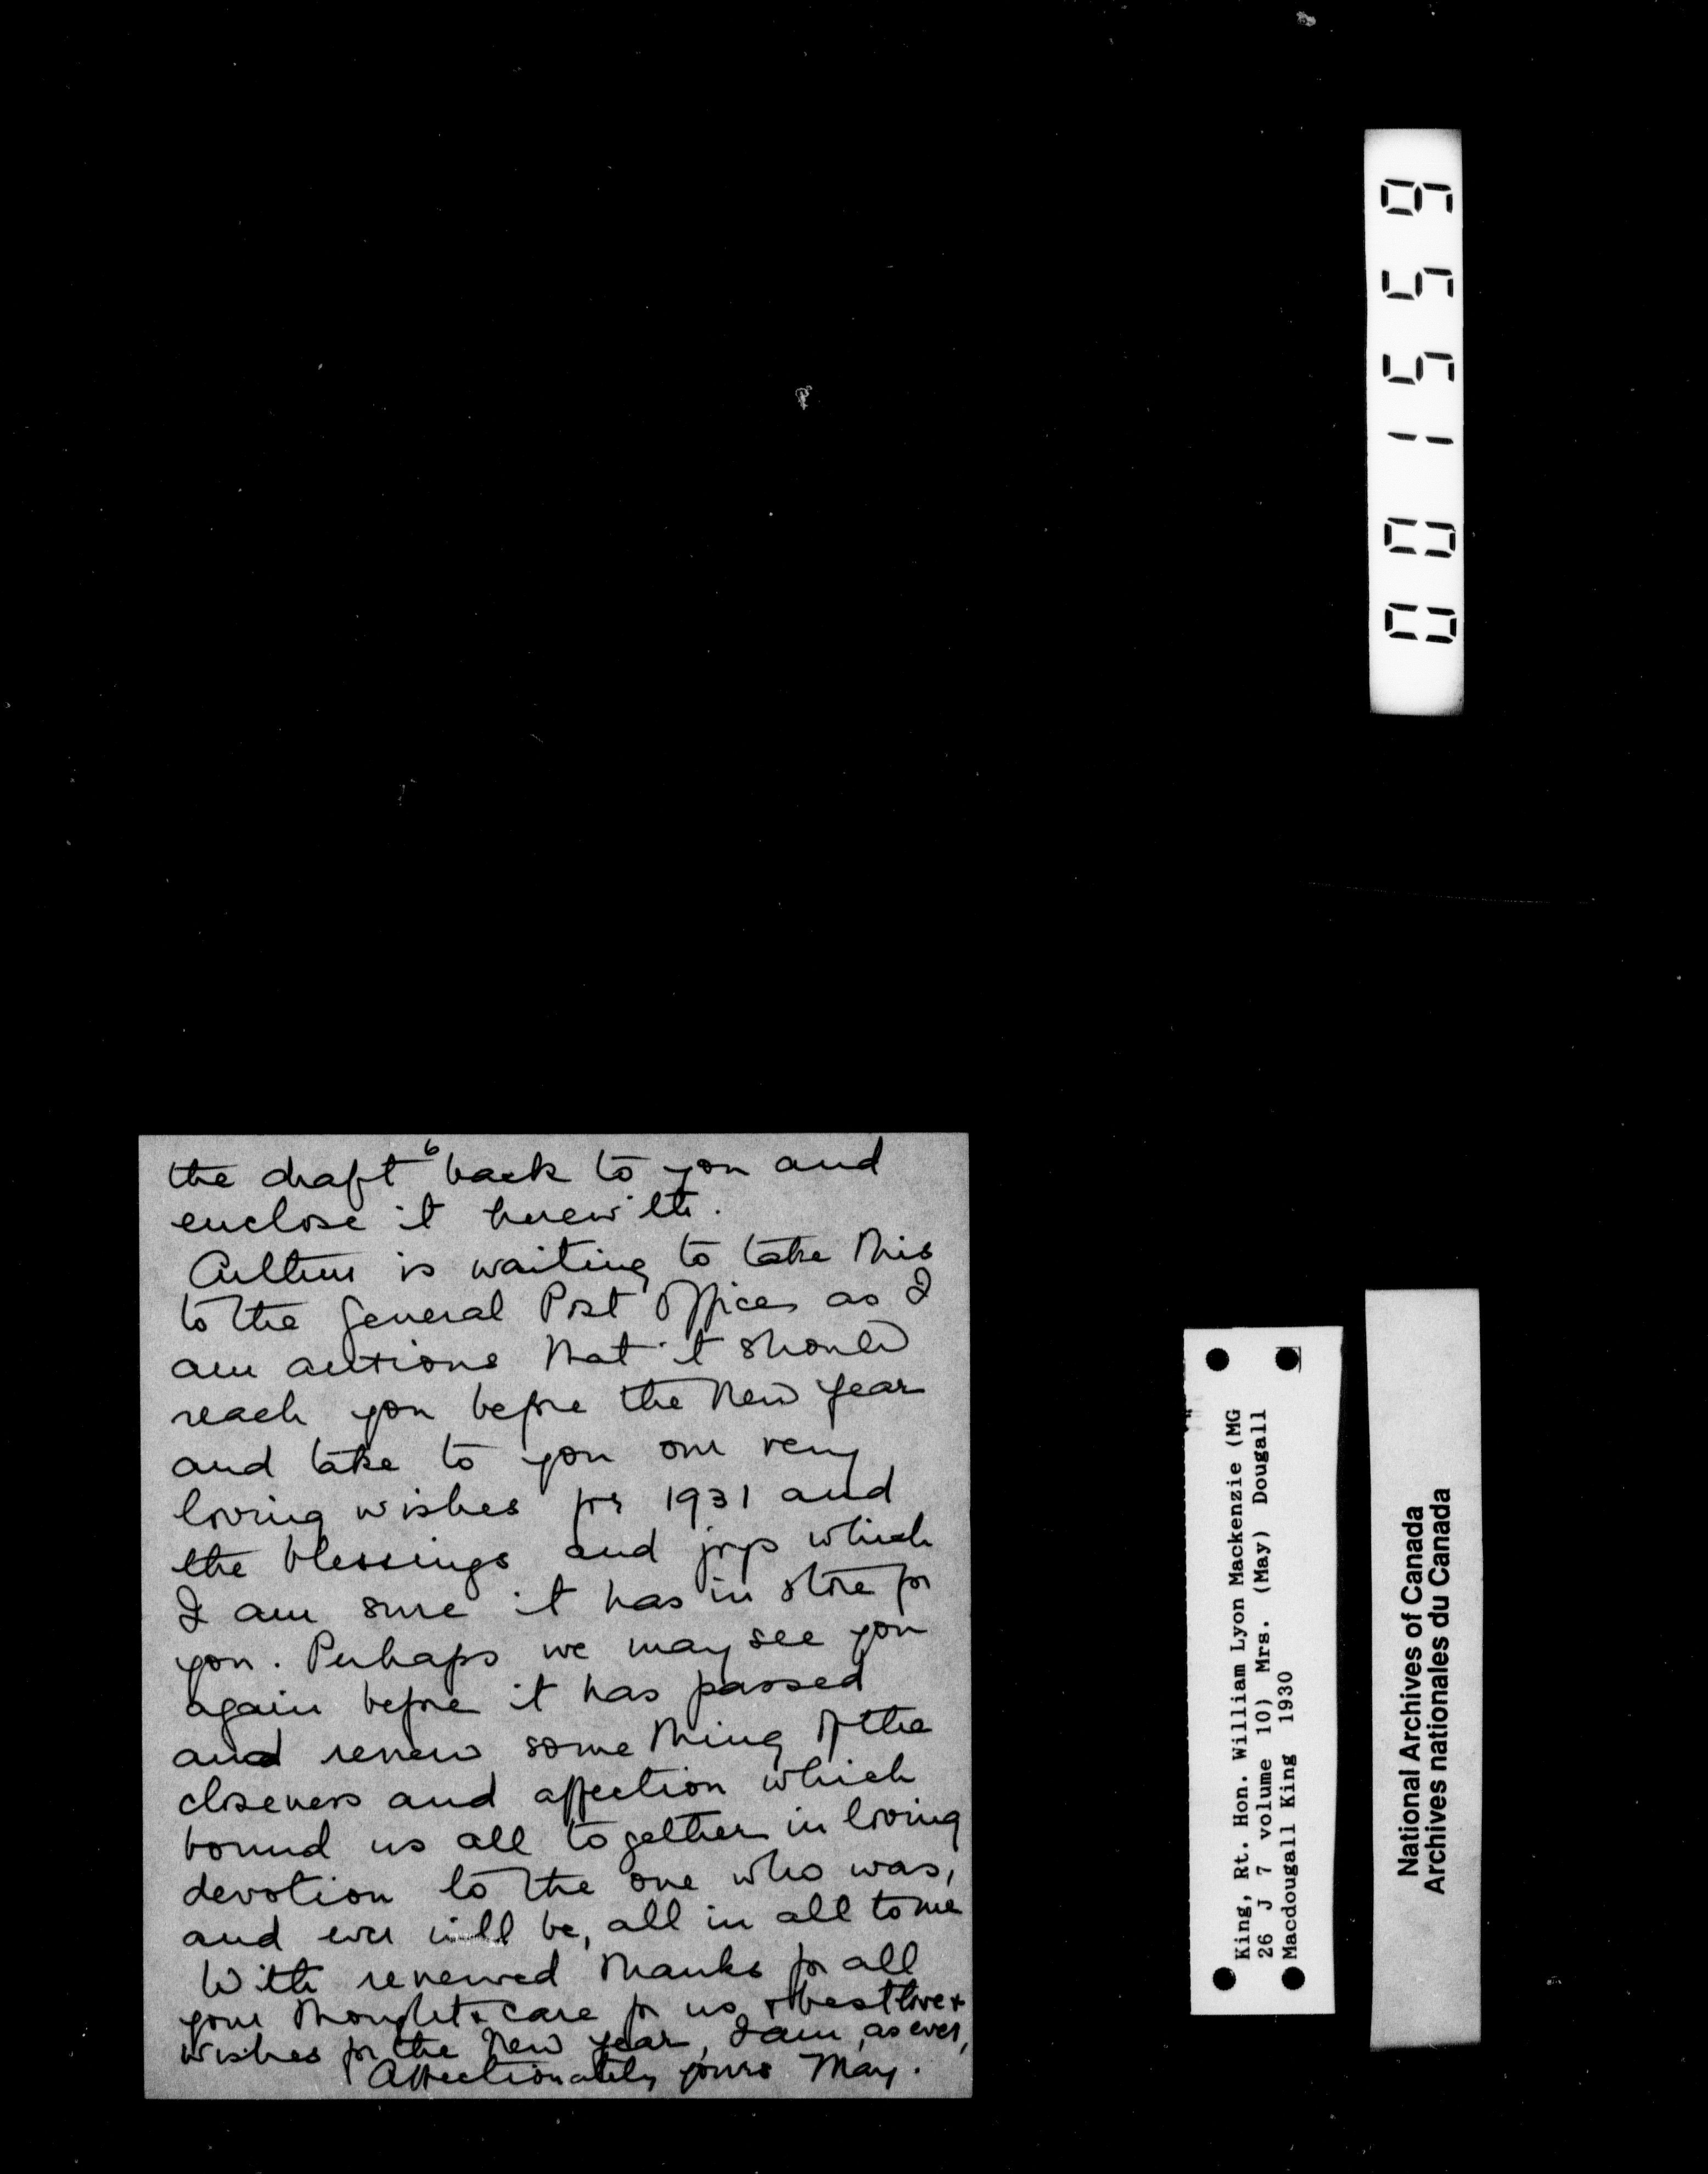 6
the draft back to you and
enclose it herewith.
Arthur is waiting to take this
to the General Post Office, as I
am anxious that it should
reach you before the New Year
and take to you our very
loving wishes for 1931 and
the blessings and joys which
I am sure it has in store for
you. Perhaps we may see you
again before it has passed
and renew something of the
closeness and affection which
bound us all together in loving
devotion to the one who was,
and ever will be, all in all to me
With renewed thanks for all
your thought & care for us, & best love &
wishes for the New Year, I am, as ever,
Affectionately yours May.
001559
King, Rt. Hon. William Lyon Mackenzie (MG
26 J 7 volume 10) Mrs. (May) Dougall
Macdougall King 1930
National Archives of Canada
Archives nationales du Canada